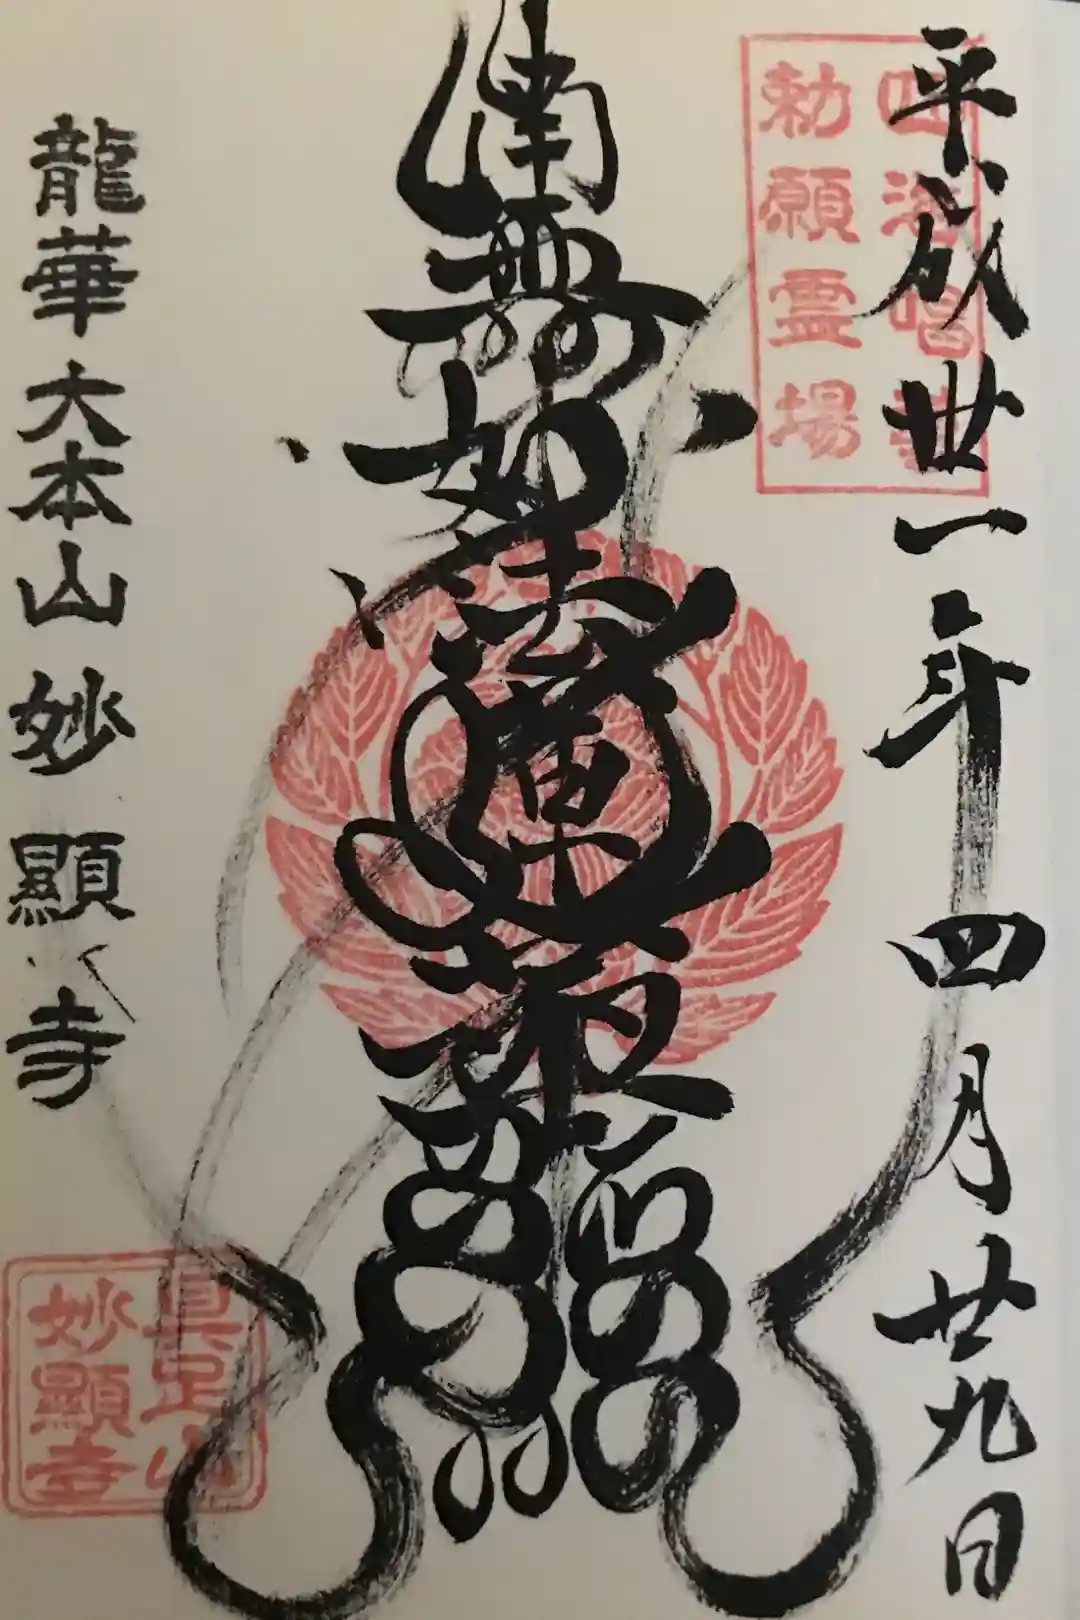 平成丗一年四月廿九日
四海唱導
勅願霊場
南無妙法蓮華経
龍華大本山妙顯寺
具足山
妙顯寺